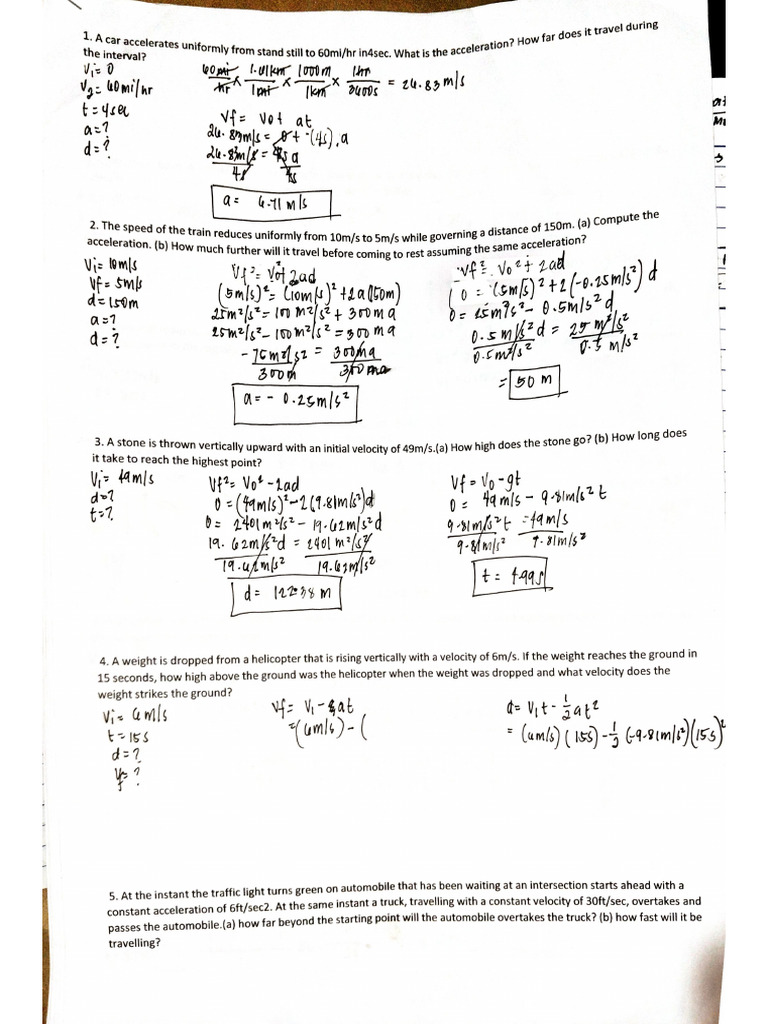 1. A car accelerates uniformly from stand still to 60mi/hr in4sec. What is the acceleration? How far does it travel during
the interval?
Vi= 0
V2= 60mi/hr
t= 4sec
a=?
d=?
60mi/hr × 1.61km/1mi × 1000m/1km × 1hr/3600s = 26.83 m/s
Vf = Vot at
26.83m/s = 0 + (4s).a
26.83m/s/4s = 4s a/4s
a= 6.71 m/s
2. The speed of the train reduces uniformly from 10m/s to 5m/s while governing a distance of 150m. (a) Compute the
acceleration. (b) How much further will it travel before coming to rest assuming the same acceleration?
Vi= 10m/s
Vf= 5m/s
d=150m
a=?
d=?
Vf²= Vo²+ 2ad
(5m/s)²= (10m/s)²+2a(150m)
25m²/s²= 100 m²/s²+ 300ma
25m²/s²- 100m²/s² = 300 ma
-75m²/s²/300m = 300ma/300ma
a= - 0.25m/s²
Vf²= Vo²+ 2ad
0 = (5m/s)²+2(-0.25m/s²) d
0= 25m²/s² - 0.5m/s²d
0.5m/s²d/0.5m/s² = 25m²/s²/0.5 m/s²
= 50 m
3. A stone is thrown vertically upward with an initial velocity of 49m/s.(a) How high does the stone go? (b) How long does
it take to reach the highest point?
Vi= 49m/s
d=?
t=?
Vf²= Vo²-2ad
0=(49m/s)²-2(9.81m/s²)d
0= 2401m²/s² - 19.62m/s²d
19.62m/s²d/19.62m/s² = 2401m²/s²/19.62m/s²
d= 122.38 m
Vf = Vo-gt
0= 49m/s - 9.81m/s² t
9.81m/s²t/9.81m/s² = 49m/s/9.81m/s²
t= 4.99s
4. A weight is dropped from a helicopter that is rising vertically with a velocity of 6m/s. If the weight reaches the ground in
15 seconds, how high above the ground was the helicopter when the weight was dropped and what velocity does the
weight strikes the ground?
Vi= 6m/s
t=15s
d=?
Vf=?
Vf= Vi - at
=(6m/s)-(
d= Vit - 1/2 at²
= (6m/s)(15s)-1/2(-9.81m/s²)(15s)²
5. At the instant the traffic light turns green on automobile that has been waiting at an intersection starts ahead with a
constant acceleration of 6ft/sec2. At the same instant a truck, travelling with a constant velocity of 30ft/sec, overtakes and
passes the automobile.(a) how far beyond the starting point will the automobile overtakes the truck? (b) how fast will it be
travelling?